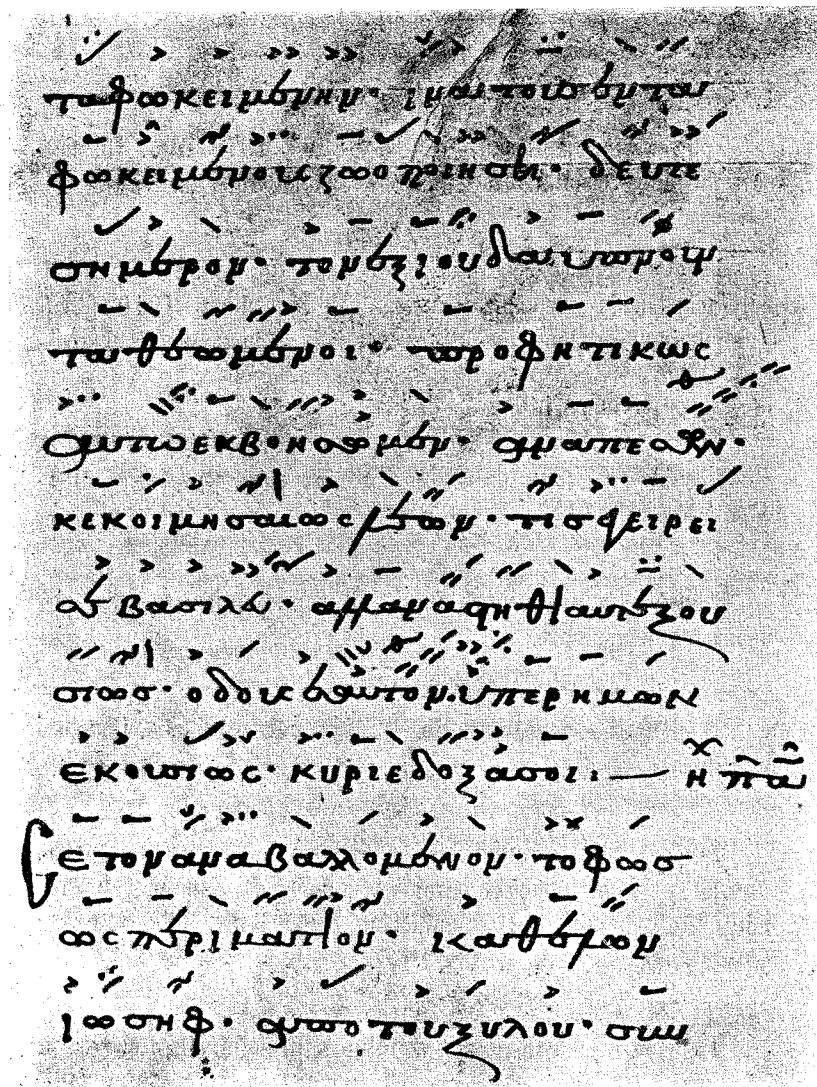 ταφω κειμενην· ινα τους εν τα
φω κειμενοις ζωοποιησει· δευτε
σημερον· τον εξ ιουδα υπνουν
τα θεωμενοι· προφητικως
αυτω εκβοησωμεν· αναπεσων·
κεκοιμησαι ως λεων· τις εγειρει
σε βασιλευ· αλλ αναστηθι αυτεξου
σιως· ο δους εαυτον υπερ ημων
εκουσιως· κυριε δοξα σοι·
Σε τον αναβαλλομενον· το φως
ωσπερ ιματιον· καθελων
ιωσηφ· απο του ξυλου· συν